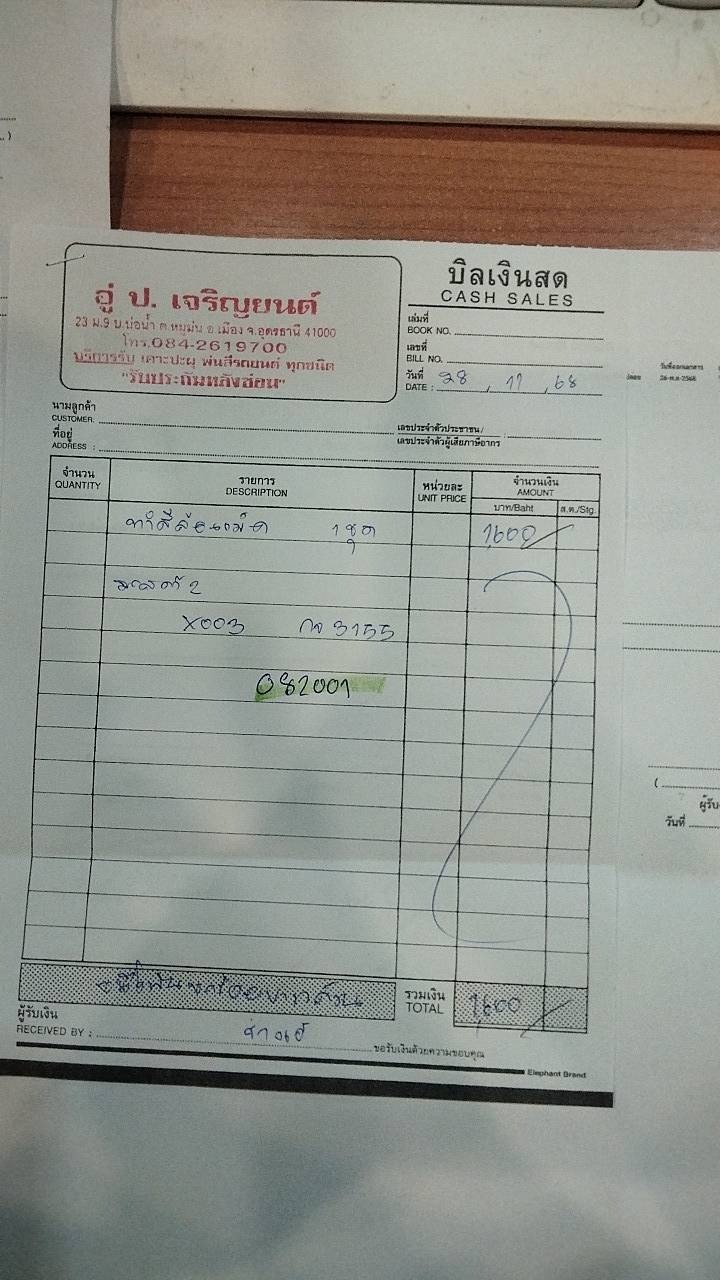 บิลเงินสด
CASH SALES
อู่ ป. เจริญยนต์
23 ม.9 บ.บ่อน้ำ ต.หมูม่น อ.เมือง จ.อุดรธานี 41000
โทร.084-2619700
บริการรับ เคาะปะผุ พ่นสีรถยนต์ ทุกชนิด
"รับประกันหลังซ่อม"
เล่มที่
BOOK NO.
เลขที่
BILL NO.
วันที่
DATE : 28 , 11 , 68
นามลูกค้า
CUSTOMER:
เลขประจำตัวประชาชน /
เลขประจำตัวผู้เสียภาษีอากร :
ที่อยู่
ADDRESS :
จำนวน รายการ หน่วยละ จำนวนเงิน
QUANTITY DESCRIPTION UNIT PRICE AMOUNT
บาท/Baht ส.ต./Stg.
1 ชุด 1600
2
X003 กจ 3155
082001
รวมเงิน
TOTAL 1600
ผู้รับเงิน
RECEIVED BY :
ขอรับเงินด้วยความขอบคุณ
Elephant Brand
วันที่เอกสาร
26-พ.ย.-2568
ผู้รับ
วันที่